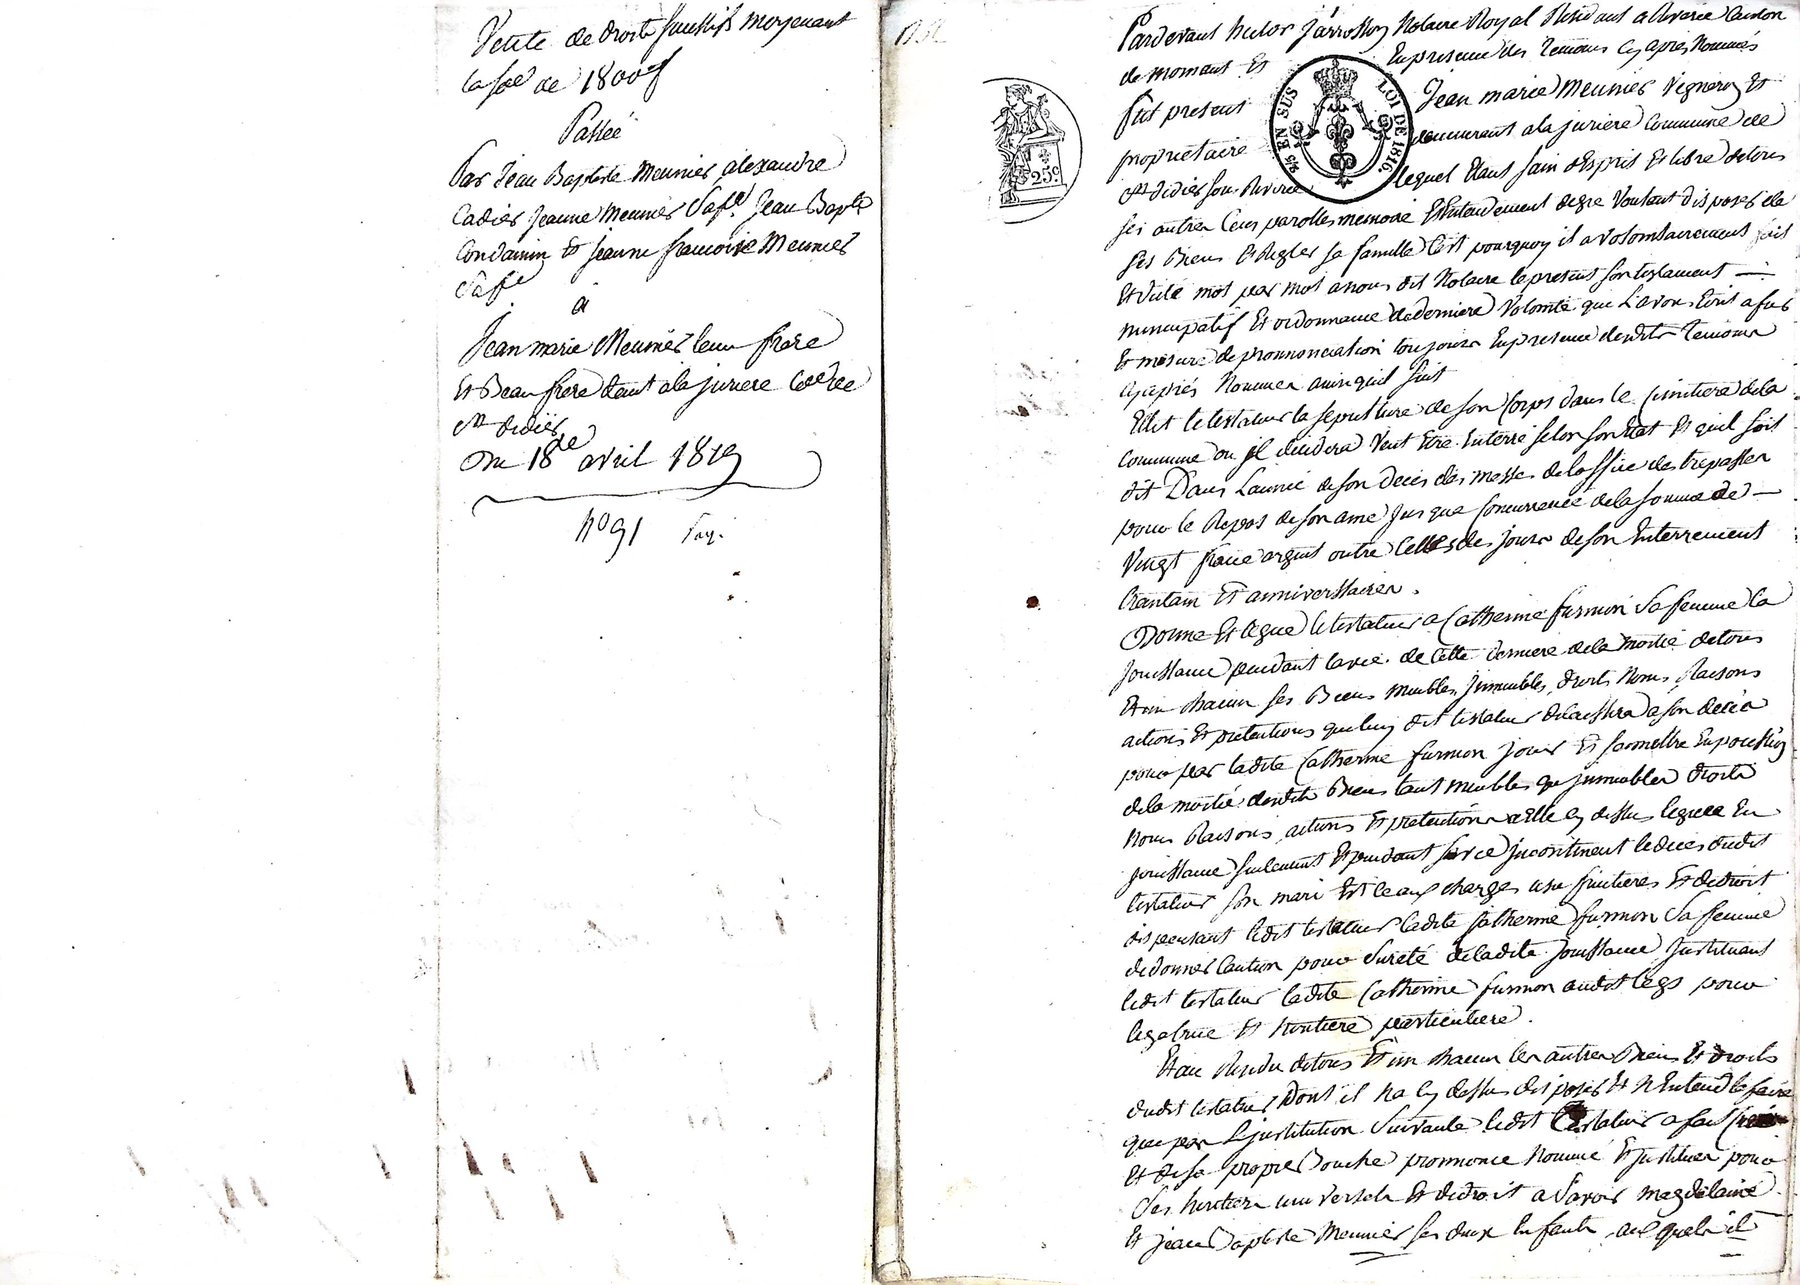 Vente de droits successifs moyenant
la so.e de 1800 f
Passée
Par Jean Baptiste Meunier alexandre
Cadier Jeanne Meunier Sa f.e Jean Bapt.e
Condamin Et Jeanne francoise Meunier
Sa f.e
a
Jean marie Meunier leur frere
Et Beau frere dem.t a la juriere C.ne de
S.t didier
Du 18 de avril 1819
n.o 91
Pardevant victor Jarrosson Notaire Royal Residant a Riverie Canton
de mornant Et En presence des temoins cy après Nommés
fut present Jean marie Meunier Vigneron Et
proprietaire demeurant a la juriere Commune de
S.t didier sous Riverie lequel Etant sain d'Esprit Et libre de tous
ses autres Sens parolles memoire Et Entendement de gre Voulant disposer de
ses Biens Et Regler sa famille C'est pourquoy il a volontairement fait
Et dicté mot par mot a nous dit Notaire le present son testament
nuncupatif Et ordonnance de derniere Volonté que L'avons Ecrit a fur
Et mesure de pronnonciation toujours En presence desdits temoins
cy après Nommes ainsi quil suit
Elit le testateur la sepulture de son Corps dans le Cimitiere de la
Commune ou jl decidera Veut Etre Enterré selon son Etat Et quil soit
dit Dans Lannée de son decès des messes de loffice des trepassés
pour le Repos de son ame jusque Concurrence de la somme de
Vingt franc argent outre Celles des jours de son Enterrement
Crantain Et anniversaires.
Donne Et legue le testateur a Catherine furnion Sa femme la
jouissance pendant la vie de Cette derniere de la moitié de tous
Et un chacun ses Biens meubles, jmmeubles, droits Noms, Raisons
actions Et pretentions que luy dit testateur delaissera a son decès
pour par ladite Catherine furnion jouir Et se mettre En possession
de la moitié desdits Biens tant meubles que jmmeubles droits
Noms Raisons, actions Et pretentions a Elle cy dessus leguée En
jouissance seulement Et pendant sa vie jncontinent le decès dudit
testateur son mari Et Ce aux charges usu fruitieres Et de droit
dispensant ledit testateur ladite Catherine furnion Sa femme
de donner Caution pour Sureté de ladite jouissance, Jnstituant
ledit testateur ladite Catherine furnion audit legs pour
legatrice Et heritiere particuliere.
Et au Residu de tous Et un chacun les autres Biens Et droits
dudit testateur Dont il na cy dessus disposé Et N'Entend le faire
que par L'jnstitution Suivante ledit testateur a fait
Et de sa propre Bouche pronnoncé Nommé Et jnstitué pour
Ses heritiers universels Et de droit a Savoir magdelaine
Et jean Baptiste Meunier ses deux Enfants, aux quels il
25 c
EN SUS
LOI DE 1816